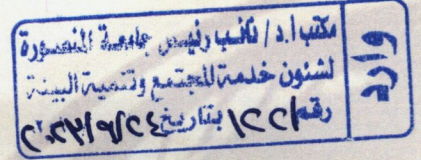 مكتب ا.د / نائب رئيس جامعة المنصورة
لشئون خدمة المجتمع وتنمية البيئة
رقم / بتاريخ
وارد